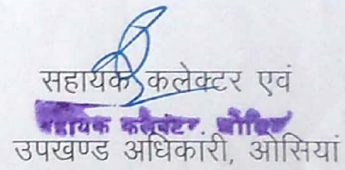 सहायक कलेक्टर एवं
सहायक कलेक्टर ओसियां
उपखण्ड अधिकारी, ओसियां